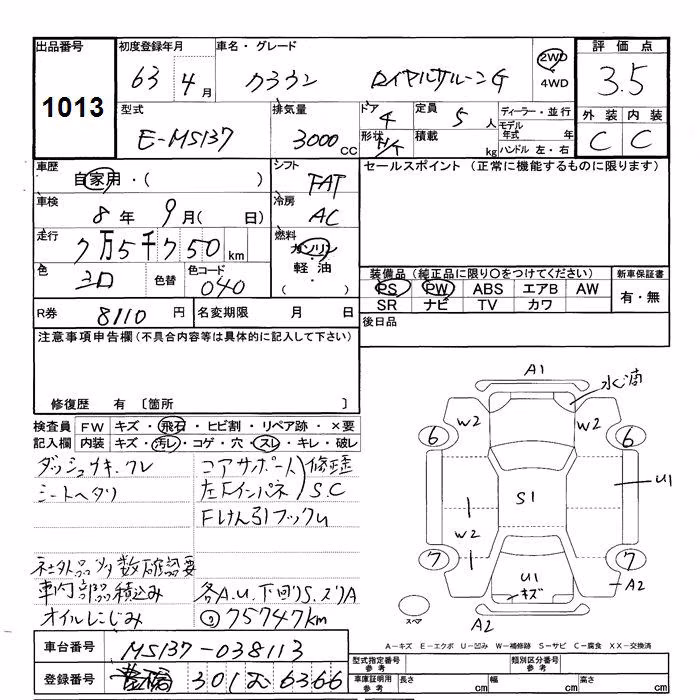 出品番号
1013
初度登録年月
63 4月
車名・グレード
クラウン ロイヤルサルーンG
2WD
4WD
評価点
3.5
外装 内装
C C
型式
E-MS137
排気量
3000cc
ドア
4
形状
H/T
定員
5人
積載
kg
ディーラー・並行
モデル年式 年
ハンドル 左・右
車歴
自家用・( )
シフト
FAT
セールスポイント(正常に機能するものに限ります)
車検
8年 9月( 日)
冷房
AC
走行
7万5千750km
燃料
ガソリン
軽油・
( )
色
シロ
色替
色コード
040
装備品(純正品に限り○をつけてください)
新車保証書
PS PW ABS エアB AW
有・無
SR ナビ TV カワ
R券
8110円
名変期限 月 日
後日品
注意事項申告欄(不具合内容等は具体的に記入して下さい)
修復歴 有 〔箇所 〕
検査員記入欄
FW キズ・飛石・ヒビ割・リペア跡・×要
内装 キズ・汚レ・コゲ・穴・スレ・キレ・破レ
ダッシュウキ.ワレ
シートヘタリ
コアサポート
左Fインパネ
修歴
S.C
Fけん引フックU
社外品 多数 確認要
車内部品積込み
オイルにじみ
各A.U.下回りS.ズリA
② 75747km
A1
水滴
W2
W2
6
6
S1
U1
W2
7
7
U1
キズ
A2
スペア
A2
A-キズ E-エクボ U-凹み W-補修跡 S-サビ C-腐食 XX-交換済
車台番号
MS137-038113
登録番号
豊橋 301 む 6366
型式指定番号
参考
類別区分番号
参考
車庫証明用
参考
長さ cm
幅 cm
高さ cm